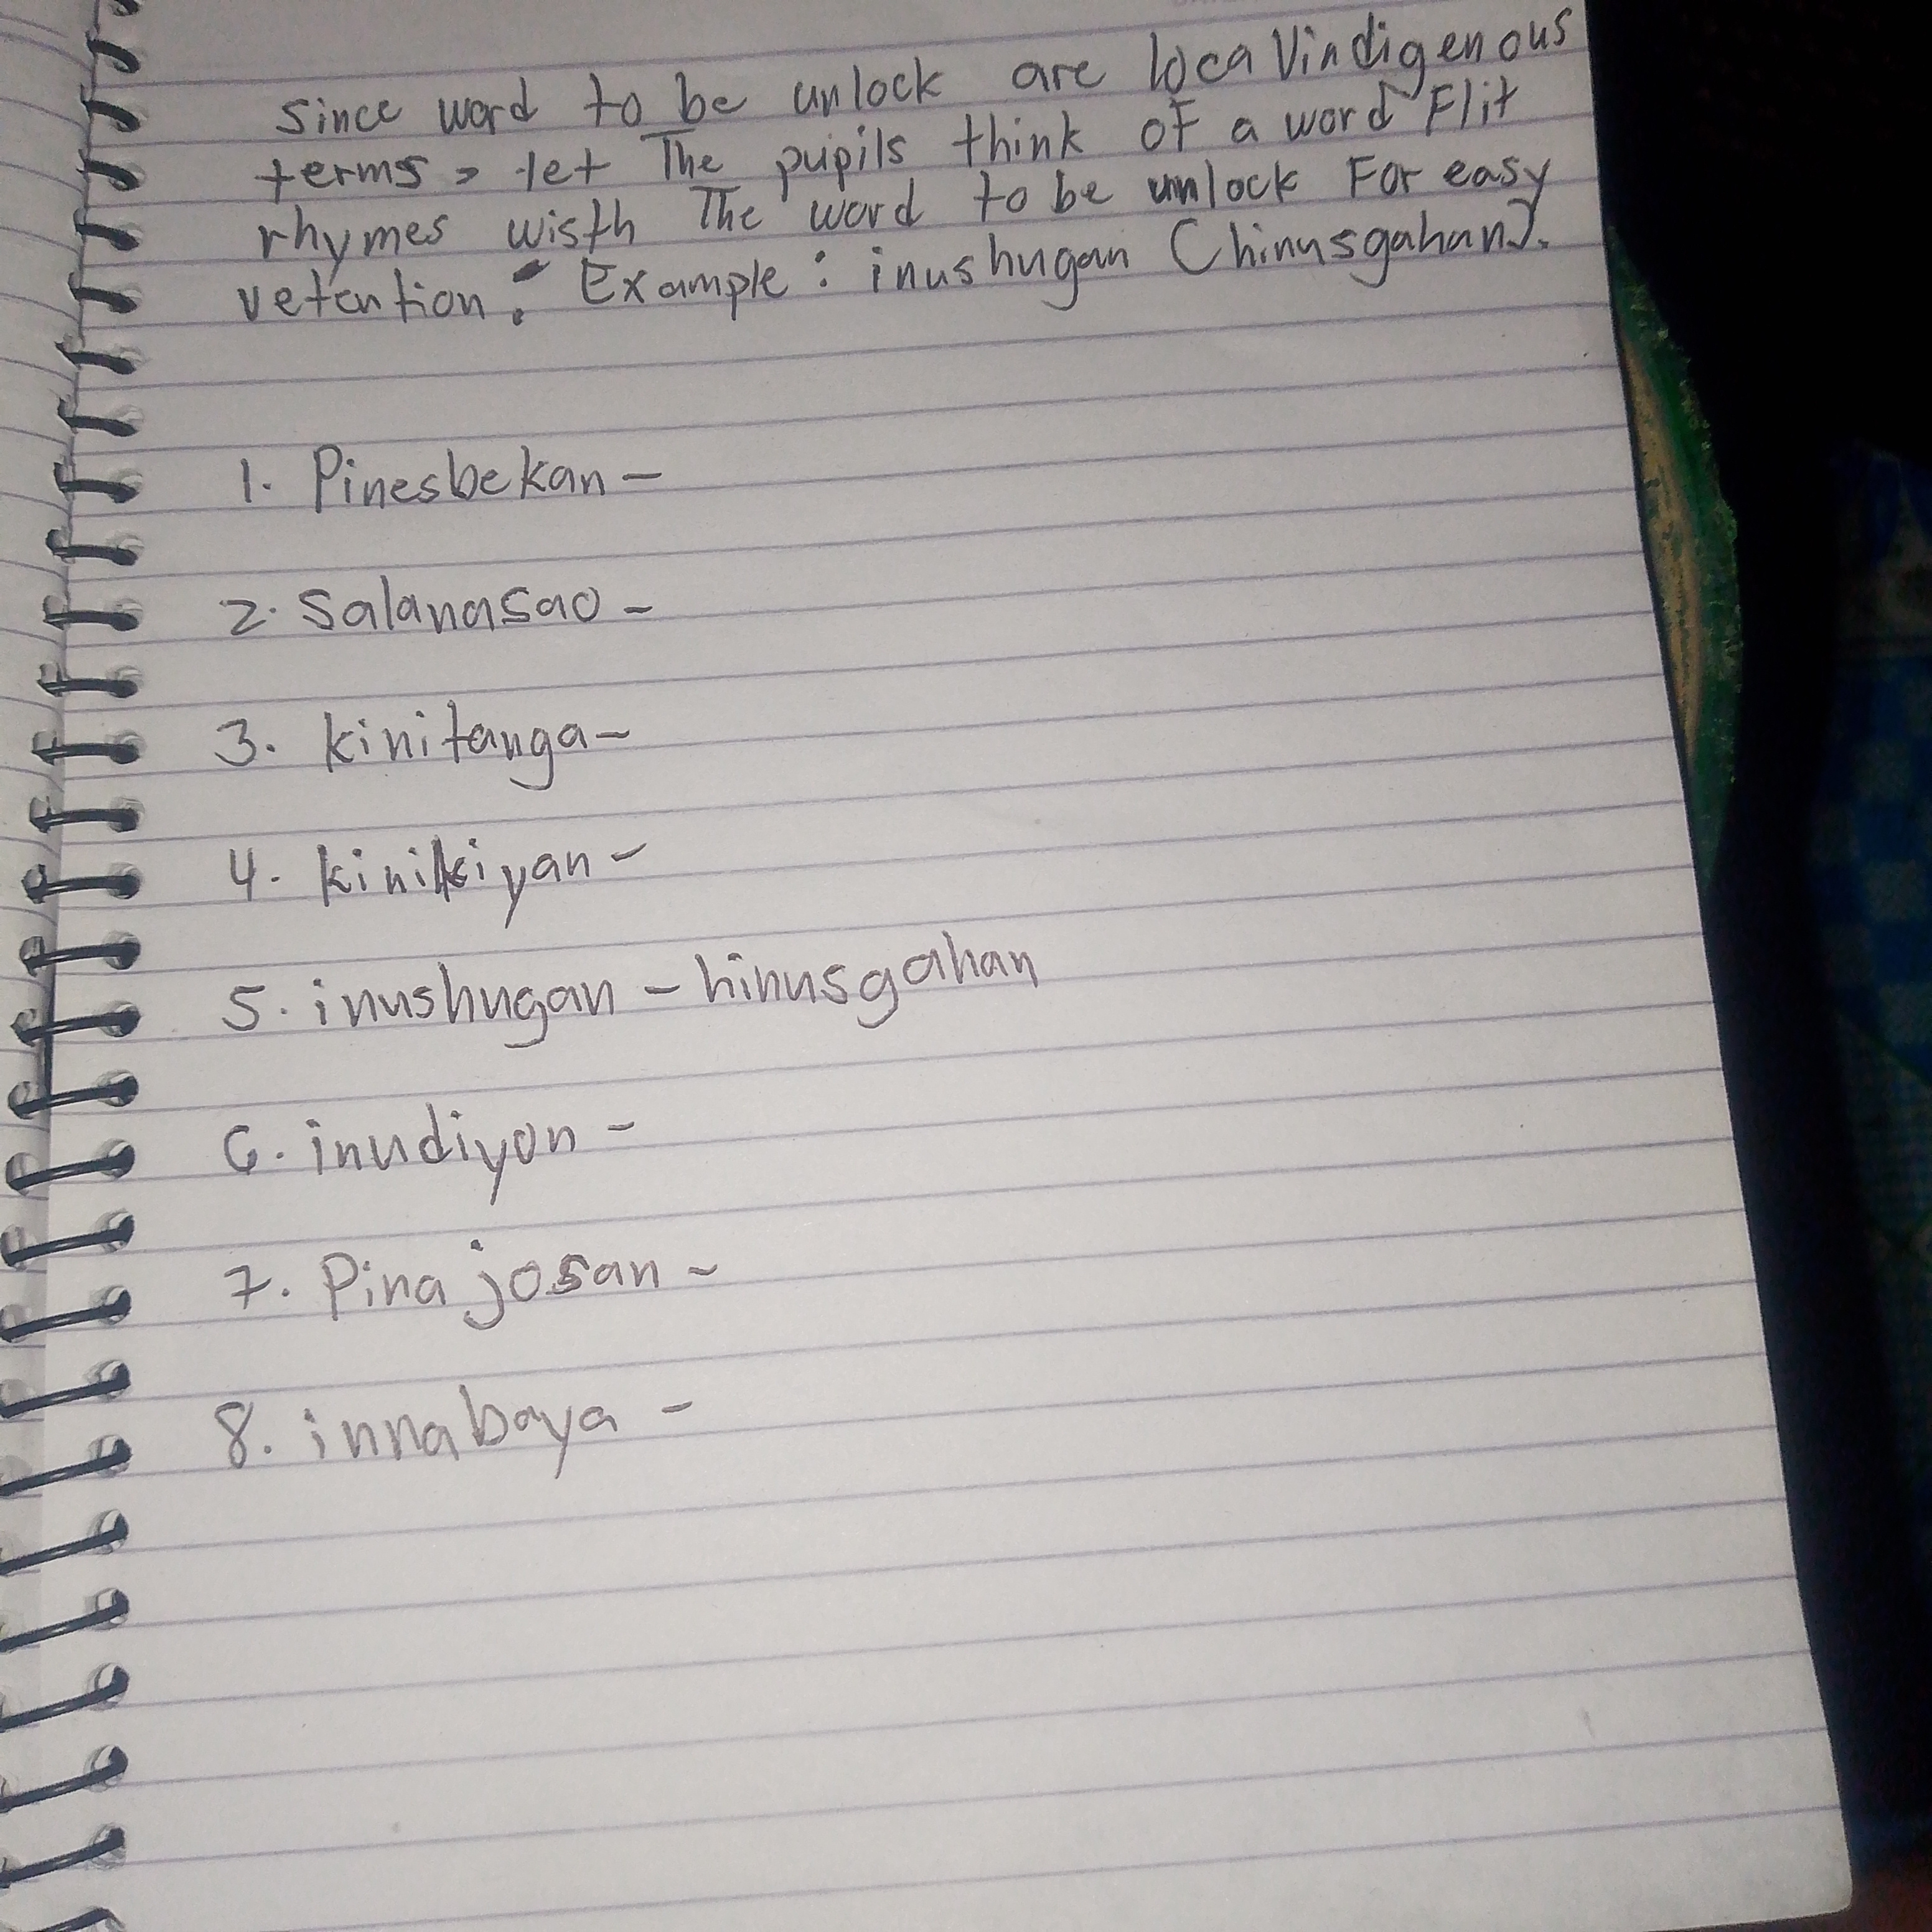 since word to be unlock are local/indigenous
terms, let The pupils think of a word Flit
rhymes wisth The word to be unlock For easy
vetention. Example: inushugan (hinusgahan).
1. Pinesbekan-
2. Salanasao-
3. kinitanga-
4. kinikiyan-
5. inushugan-hinusgahan
6. inudiyon-
7. Pinajosan-
8. innabaya-